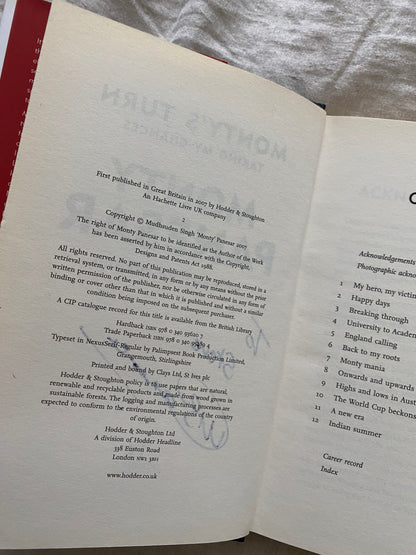 First published in Great Britain in 2007 by Hodder & Stoughton
An Hachette Livre UK company
2
Copyright © Mudhsuden Singh 'Monty' Panesar 2007
The right of Monty Panesar to be identified as the Author of the Work
has been asserted by him in accordance with the Copyright,
Designs and Patents Act 1988.
All rights reserved. No part of this publication may be reproduced, stored in a
retrieval system, or transmitted, in any form or by any means without the prior
written permission of the publisher, nor be otherwise circulated in any form of
binding or cover other than that in which it is published and without a similar
condition being imposed on the subsequent purchaser.
A CIP catalogue record for this title is available from the British Library
Hardback ISBN 978 0 340
Trade Paperback ISBN 978 0 340
Typeset in NexusSerif-Regular by Palimpsest Book Production Limited,
Grangemouth, Stirlingshire
Printed and bound by Clays Ltd, St Ives plc
Hodder & Stoughton policy is to use papers that are natural,
renewable and recyclable products and made from wood grown in
sustainable forests. The logging and manufacturing processes are
expected to conform to the environmental regulations of the country
of origin.
Hodder & Stoughton Ltd
A division of Hodder Headline
338 Euston Road
London NW1 3BH
www.hodder.co.uk
To
MONTY'S TURN
TAKING MY CHANCES
MONTY
C
Acknowledgements
Photographic ackno
1 My hero, my victim
2 Happy days
3 Breaking through
4 University to Acade
5 England calling
6 Back to my roots
7 Monty mania
8 Onwards and upwards
9 Highs and lows in Aust
10 The World Cup beckons
11 A new era
12 Indian summer
Career record
Index